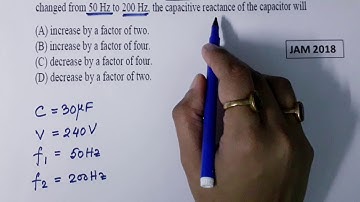 changed from 50 Hz to 200 Hz, the capacitive reactance of the capacitor will
(A) increase by a factor of two.
(B) increase by a factor of four.
(C) decrease by a factor of four.
(D) decrease by a factor of two.
JAM 2018
C = 30μF
V = 240V
f₁ = 50Hz
f₂ = 200Hz